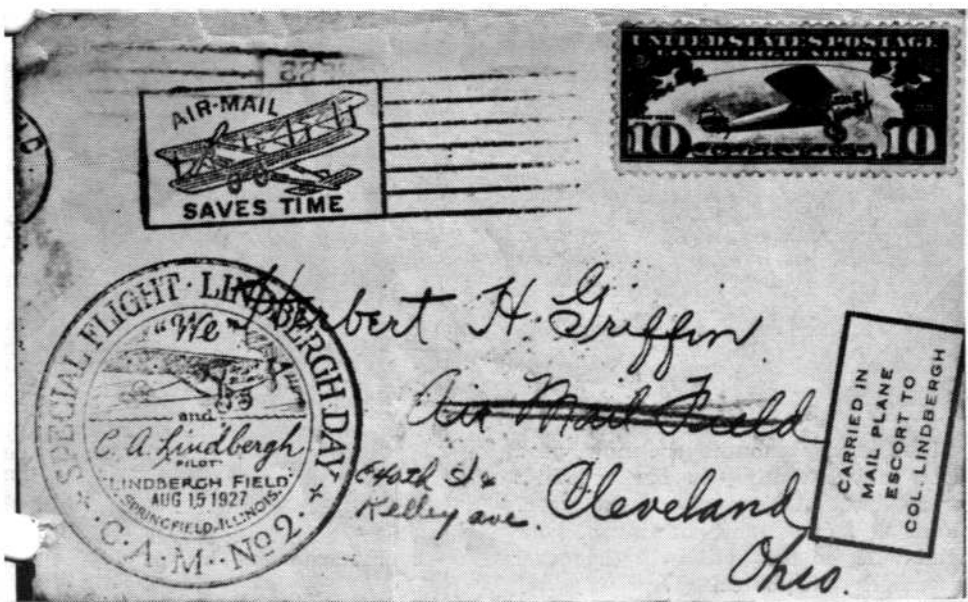 AIR-MAIL
SAVES TIME
UNITED STATES POSTAGE
10 10
SPECIAL FLIGHT · LINDBERGH DAY
"We"
and
C. A. Lindbergh
PILOT
"LINDBERGH FIELD"
AUG 15 1927
SPRINGFIELD, ILLINOIS.
· C · A · M · · No 2 ·
Herbert H. Griffin
Air Mail Field
Kelley ave.
Cleveland
Ohio.
CARRIED IN
MAIL PLANE
ESCORT TO
COL. LINDBERGH